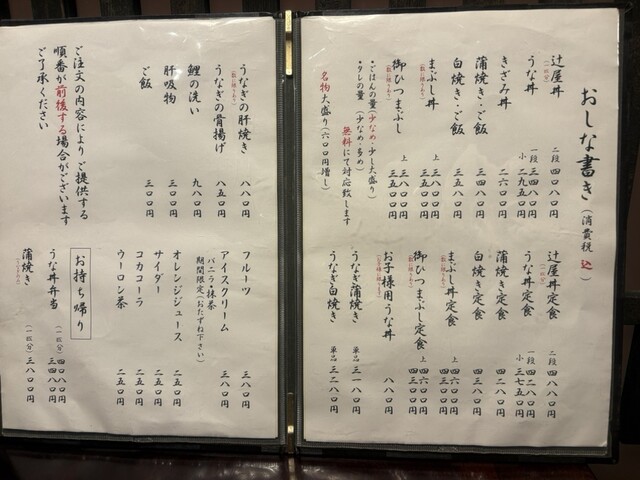 おしな書き（消費税 込）
辻屋丼 二段 四〇八〇円
うな丼 （一枚分） 一段 三四八〇円
小 二九五〇円
きざみ丼 二六〇〇円
蒲焼き・ご飯 三四八〇円
白焼き・ご飯 三五八〇円
まぶし丼 上 三八〇〇円
御ひつまぶし 上 三八〇〇円
三五〇〇円
・ごはんの量（少なめ・少し大盛り）
・タレの量（少なめ・多め）
無料にて対応致します
名物大盛り（六〇〇円増し）
辻屋丼定食 二段 四八八〇円
うな丼定食 一段 四二八〇円
小 三七五〇円
蒲焼き定食 四二八〇円
白焼き定食 四三八〇円
まぶし丼定食 上 四六〇〇円
四三〇〇円
御ひつまぶし定食 上 四六〇〇円
四三〇〇円
お子様用うな丼 八八〇円
うなぎ蒲焼き 単品 三一八〇円
うなぎ白焼き 単品 三二八〇円
うなぎの肝焼き 八八〇円
うなぎの骨揚げ 八五〇円
鯉の洗い 九八〇円
肝吸物 三〇〇円
ご飯 三〇〇円
ご注文の内容によりご提供する
順番が前後する場合がございます
ご了承ください
フルーツ 三八〇円
アイスクリーム 三八〇円
バニラ・抹茶
期間限定（おたずね下さい）
オレンジジュース 二五〇円
サイダー 二五〇円
コカコーラ 二五〇円
ウーロン茶 二五〇円
お持ち帰り
うな丼弁当 （一枚分） 四〇八〇円
三四八〇円
蒲焼き （一枚分） 三一八〇円